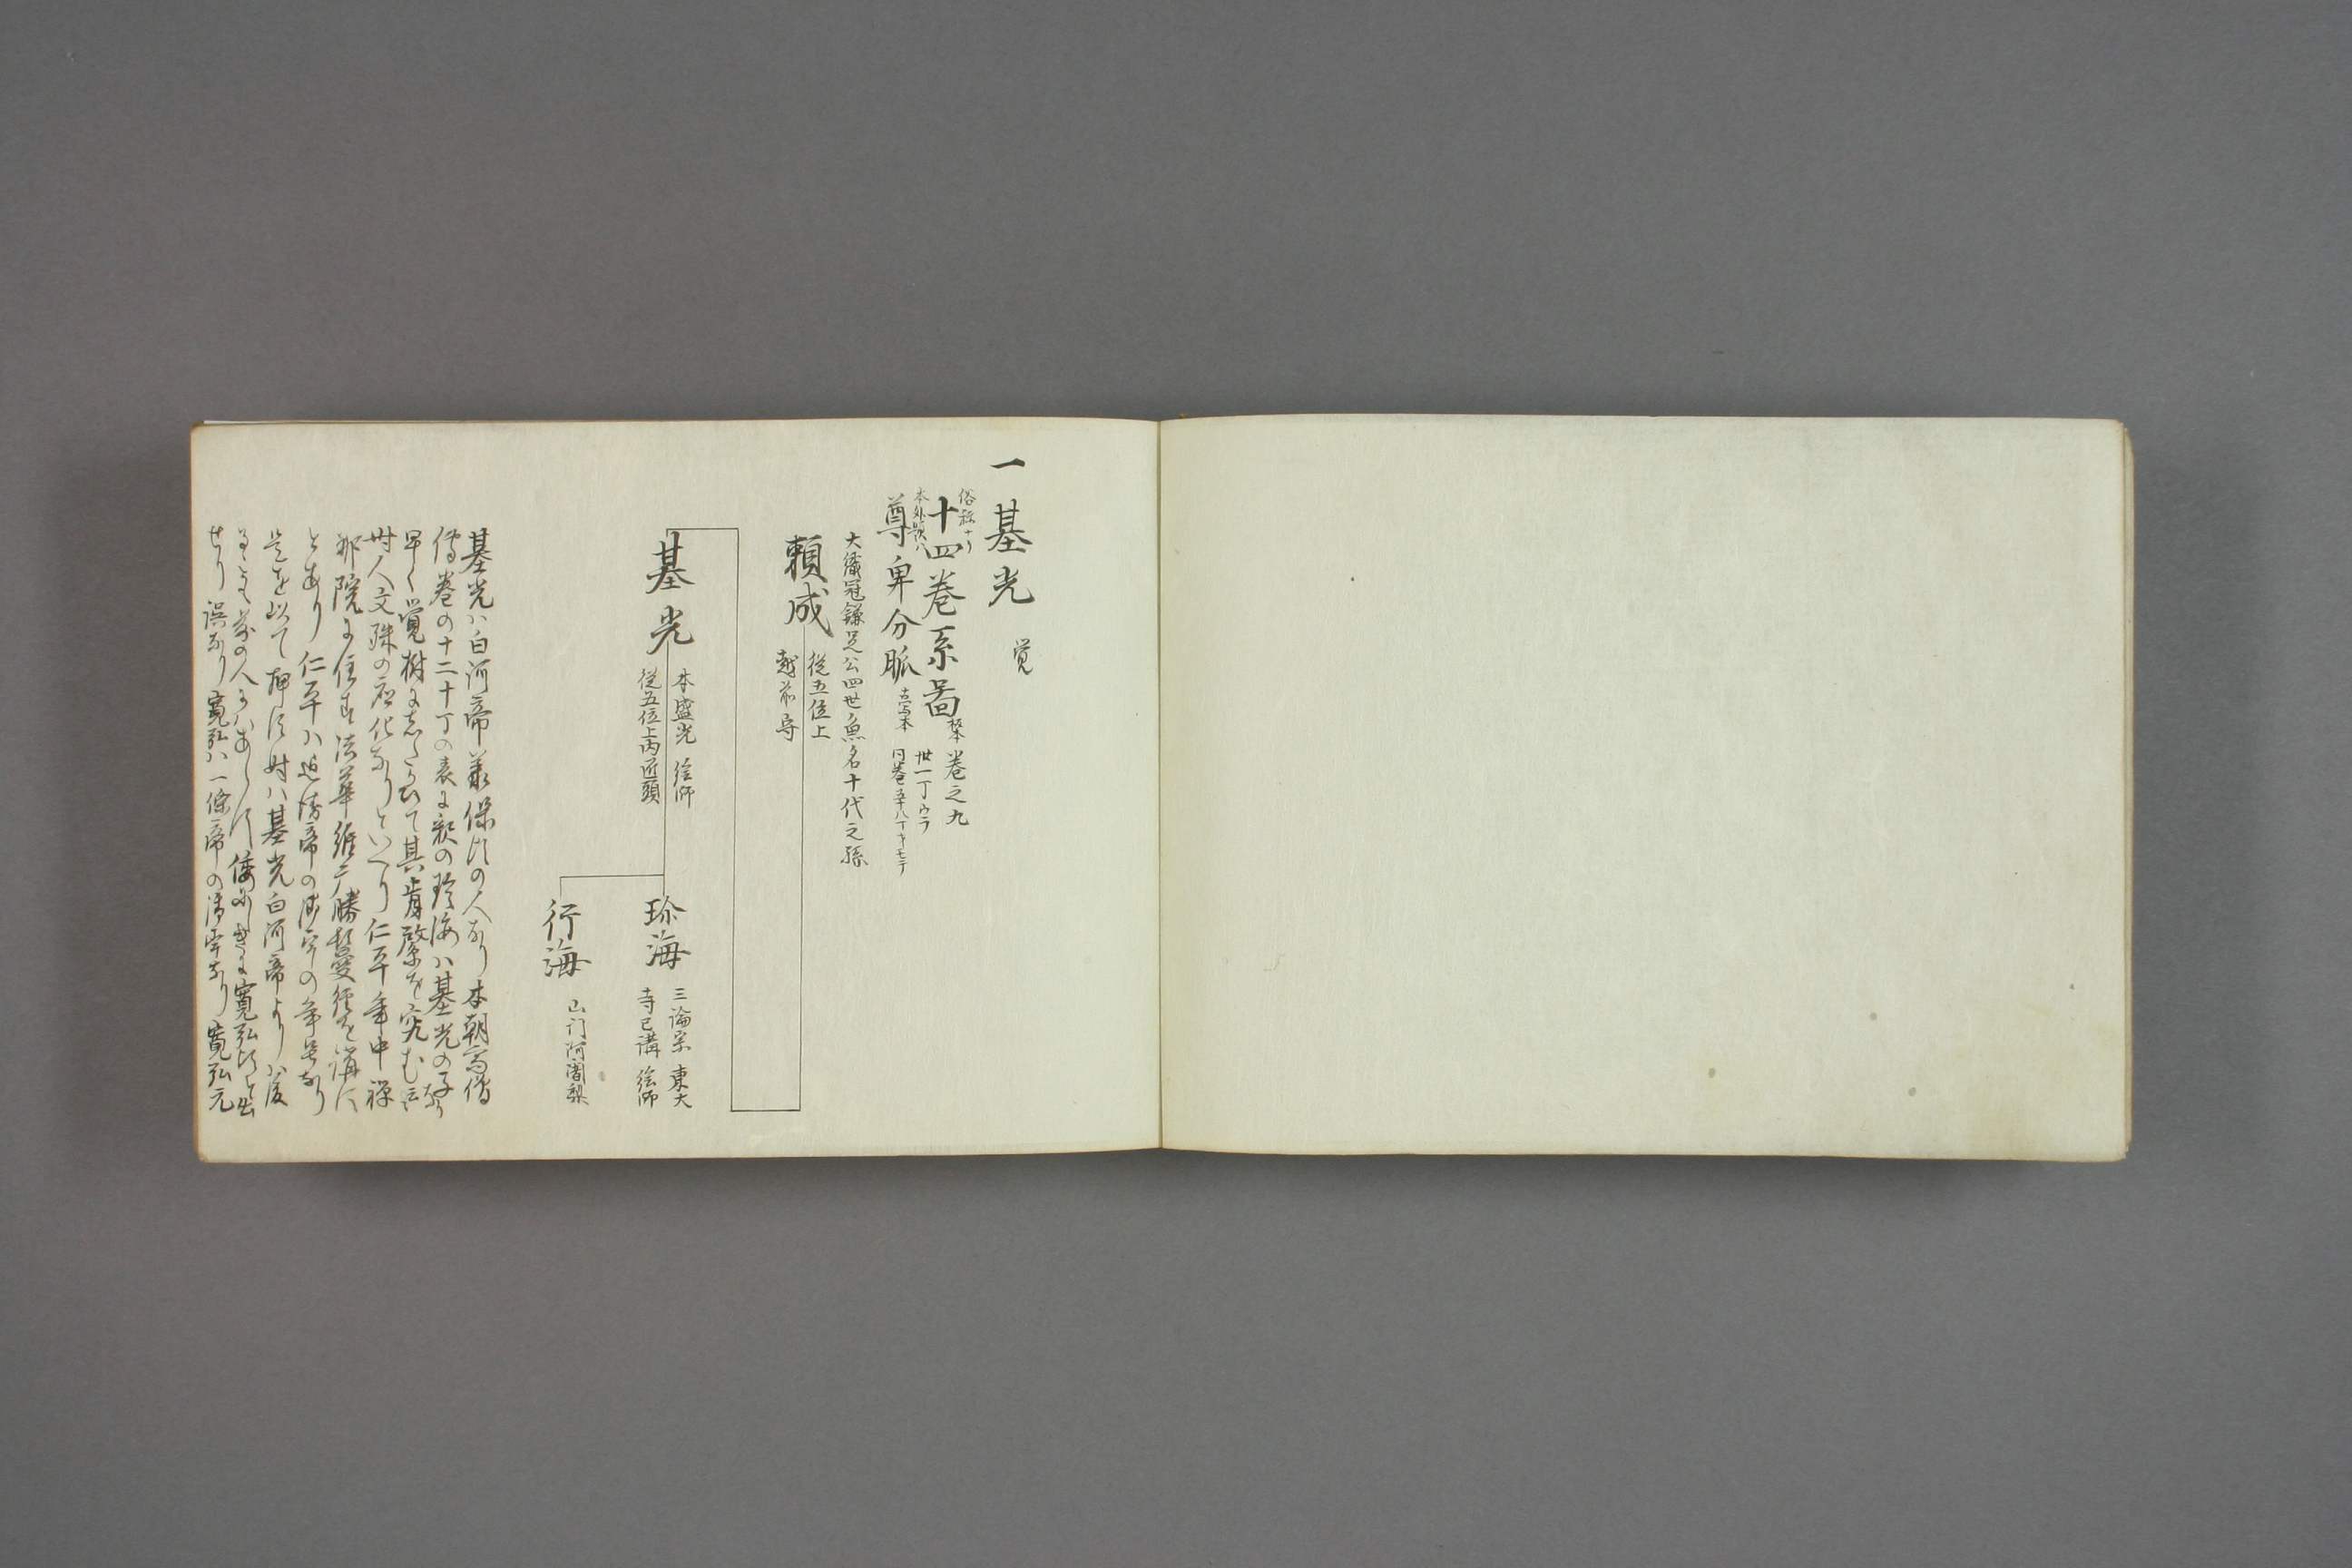 一 基光 覚
俗称ナリ
十四巻系図 板本 巻之九
丗一丁ウラ
本外題ハ
尊卑分脈 古写本 同巻 五十八丁
大織冠鎌足公四世魚名十代之孫
頼成 従五位上
越前守
基光 本盛光 絵師
従五位上内匠頭
珍海 三論宗 東大
寺已講 絵師
行海 山门阿闍梨
基光ハ白河帝兼保頃の人なり本朝高僧
傳巻の十二十丁の表に釈の珍海ハ基光の子なり
早く覚樹にしたかひて其肯綮を究む云
世人文殊の応化なりといへり仁平年中禅
那院に住す法華維广勝鬘経を講し
とあり仁平ハ近衛帝の御宇の年号なり
是を以て押ス時ハ基光白河帝よりハ後
寛弘頃と出
せり誤なり寛弘ハ一條帝の御宇なり寛弘元